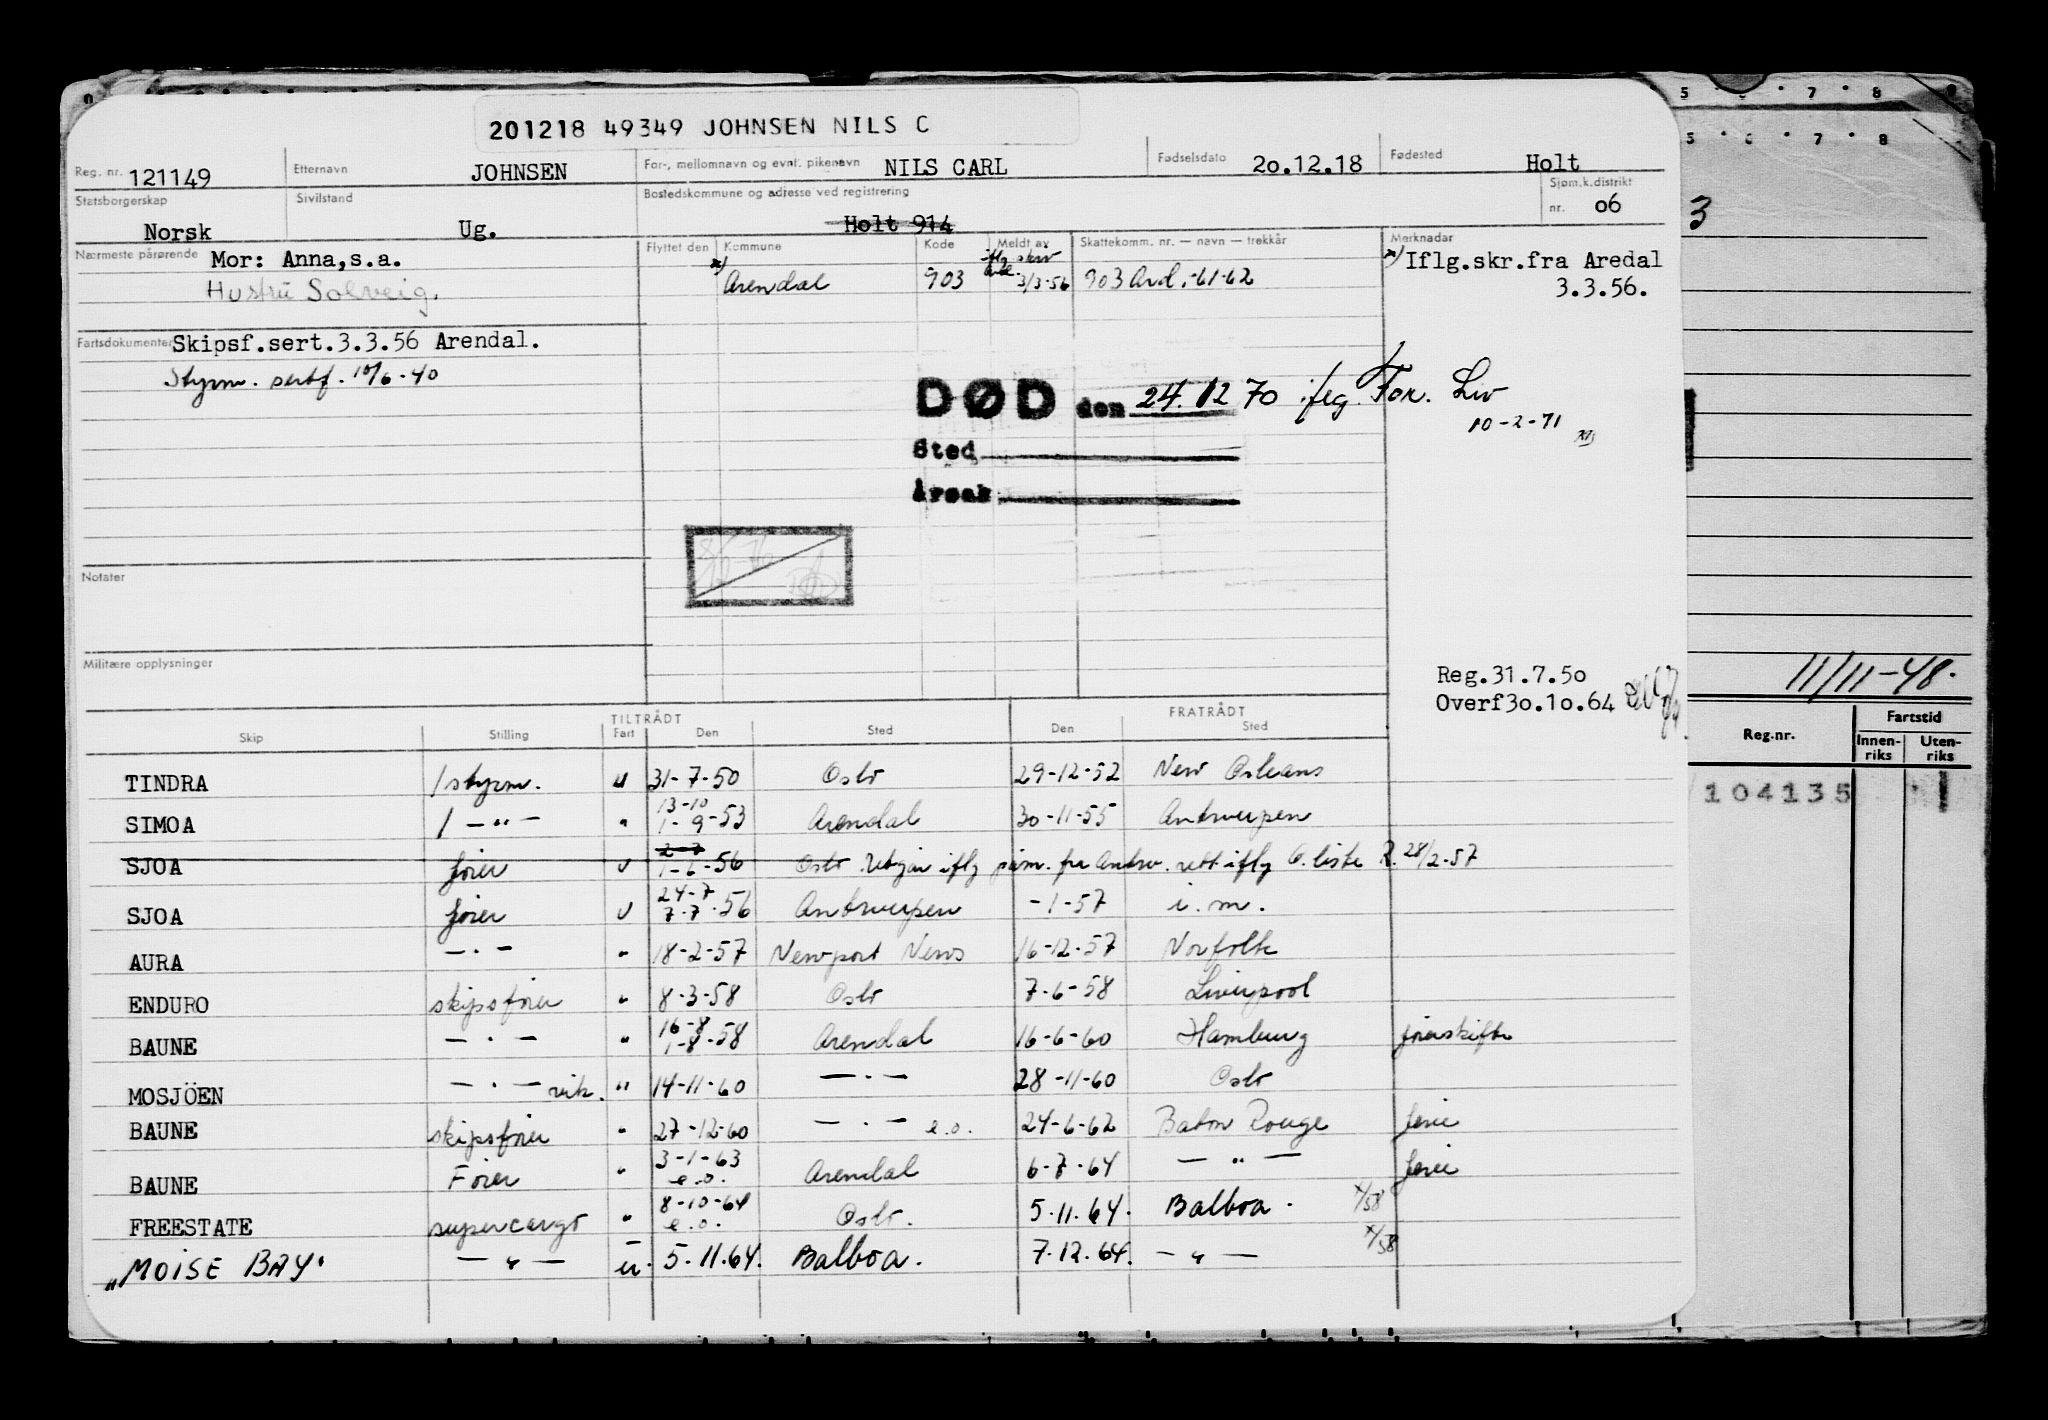 201218 49349 JOHNSEN NILS C
Reg. nr. 121149 Etternavn JOHNSEN For-, mellomnavn og evnt. pikenavn NILS CARL Fødselsdato 20.12.18 Fødested Holt
Statsborgerskap Norsk Sivilstand Ug. Bostedskommune og adresse ved registrering Holt 914 Sjøm.k.distrikt nr. 06
Nærmeste pårørende Mor: Anna,s.a.
Hustru Solveig.
Flyttet den Kommune Kode Meldt av Skattekomm. nr. — navn — trekkår Merknadar
x) Arendal 903 iflg skriv 3/3-56 903 Ard.-61-62
x) Iflg.skr.fra Aredal
3.3.56.
Fartsdokumenter Skipsf.sert.3.3.56 Arendal.
Styrm. sertf. 10/6-40
DØD den 24.12 70 iflg. For. Liv
10-2-71
Sted
Årsak
Notater
Militære opplysninger
Reg.31.7.50
Overf30.10.64
TILTRÅDT FRATRÅDT
Skip Stilling Fart Den Sted Den Sted
TINDRA 1 styrm. u 31-7-50 Oslo 29-12-52 New Orleans
SIMOA 1 — " — " 13-10 1-9-53 Arendal 30-11-55 Antwerpen
SJOA fører u 2-7 1-6-56 Oslo Utgår iflg påm. fra Antw. rett iflg O. liste R. 28/2-57
SJOA fører u 24-7 7-7-56 Antwerpen -1-57 i.m.
AURA — " — " 18-2-57 Newport News 16-12-57 Norfolk
ENDURO skipsfører " 8-3-58 Oslo 7-6-58 Liverpool
BAUNE — " — " 16-8 1-8-58 Arendal 16-6-60 Hamburg førerskifte
MOSJÖEN — " — vik. " 14-11-60 — " — 28-11-60 Oslo
BAUNE skipsfører " 27-12-60 — " — e.o. 24-6-62 Baton Rouge ferie
BAUNE Fører " 3-1-63 e.o. Arendal 6-7-64 — " — ferie
FREESTATE supercargo " 8-10-64 e.o. Oslo. 5.11.64. Balboa. x/58
"MOISE BAY" — " — u. 5.11.64. Balboa. 7.12.64. — " — x/58
5 7 8
5 6 7 8
3
11/11-48.
Reg.nr. Fartstid
Innenriks Utenriks
104135